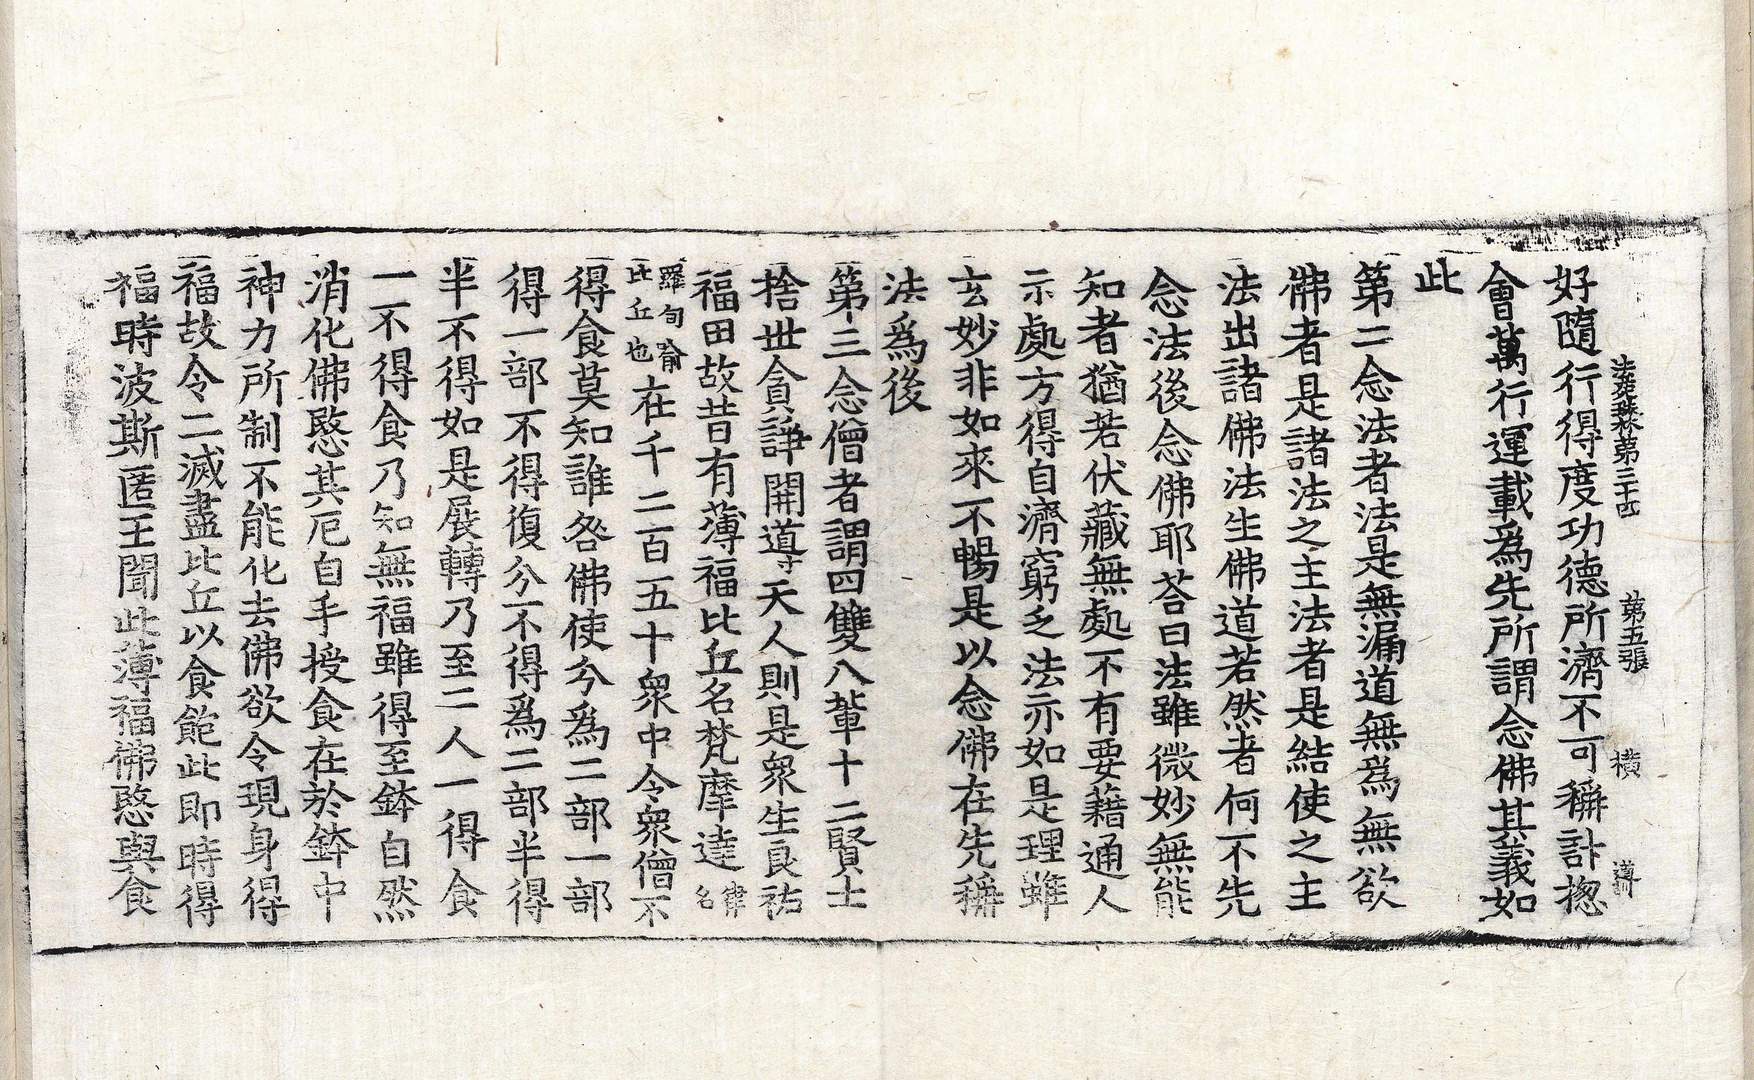 法苑珠林第三十四 第五張 橫 遵
好隨行得度功德所濟不可稱計揔
會萬行運載爲先所謂念佛其義如
此
第二念法者法是無漏道無爲無欲
佛者是諸法之主法者是結使之主
法出諸佛法生佛道若然者何不先
念法後念佛耶荅曰法雖微妙無能
知者猶若伏藏無處不有要藉通人
示處方得自濟窮乏法亦如是理雖
玄妙非如來不暢是以念佛在先稱
法爲後
第三念僧者謂四雙八輩十二賢士
捨世貪諍開導天人則是衆生良祐
福田故昔有薄福比丘名梵摩達律名
羅旬喻比丘也在千二百五十衆中令衆僧不
得食莫知誰咎佛使分爲二部一部
得一部不得復分不得爲二部半得
半不得如是展轉乃至二人一得食
一不得食乃知無福雖得至鉢自然
消化佛愍其厄自手授食在於鉢中
神力所制不能化去佛欲令現身得
福故令二滅盡比丘以食飽此即時得
福時波斯匿王聞此薄福佛愍與食